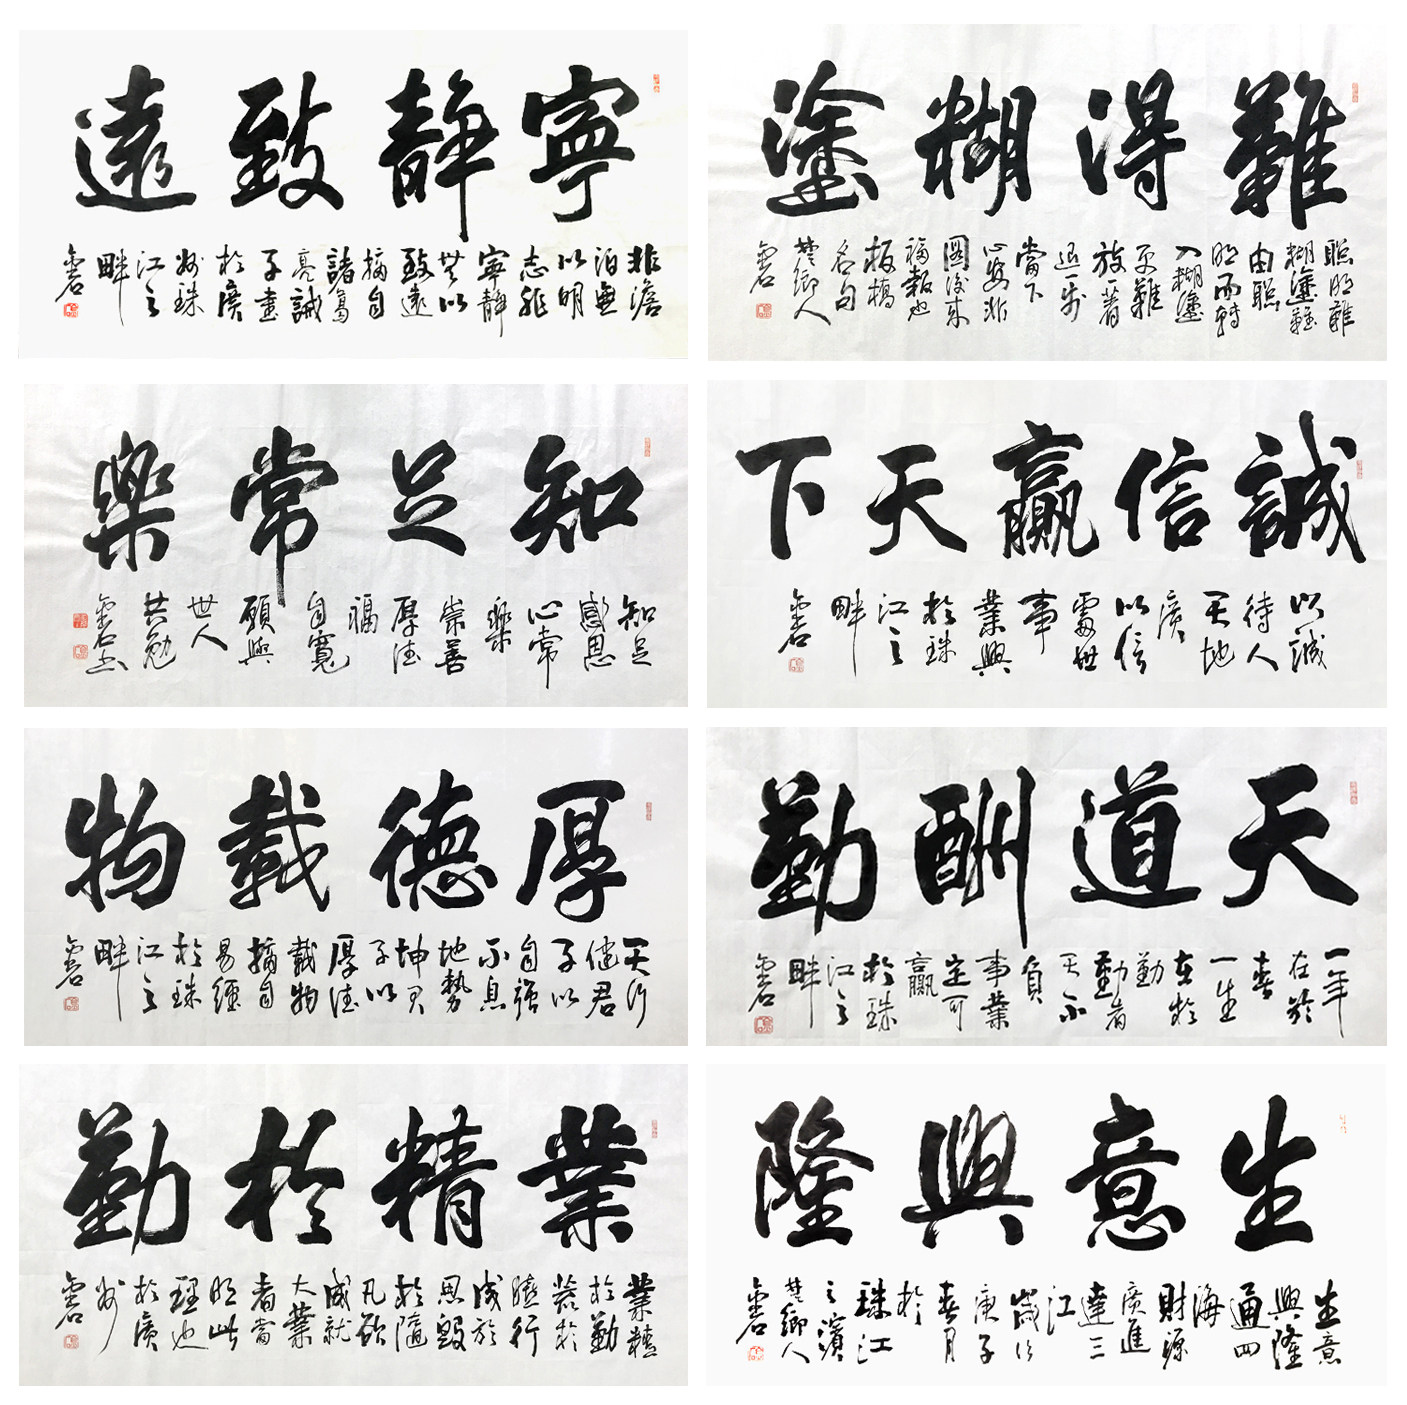 寧靜致遠
非澹
泊無
以明
志非
寧靜
無以
致遠
摘自
諸葛
亮誡
子書
於廣
州珠
江之
畔
難得糊塗
聰明難
糊塗難
由聰
明而轉
入糊塗
更難
放一著
退一步
當下
心安非
圖後來
福報也
板橋
名句
楚鄉人
知足常樂
知足
感恩
心常
樂
崇善
厚德
福
自寬
願與
世人
共勉
誠信贏天下
以誠
待人
天地
廣
以信
處世
事
業興
於珠
江之
畔
厚德載物
天行
健君
子以
自強
不息
地勢
坤君
子以
厚德
載物
摘自
易經
於珠
江之
畔
天道酬勤
一年
在於
春
一生
在於
勤
勤者
天不
負
事業
定可
贏
於珠
江之
畔
業精於勤
業精
於勤
荒於
嬉行
成於
思毀
於隨
凡欲
成就
大業
者當
明此
理也
於廣
州
生意興隆
生意
興隆
通四
海
財源
廣進
達三
江
歲次
庚子
春月
於
珠江
之濱
楚鄉人